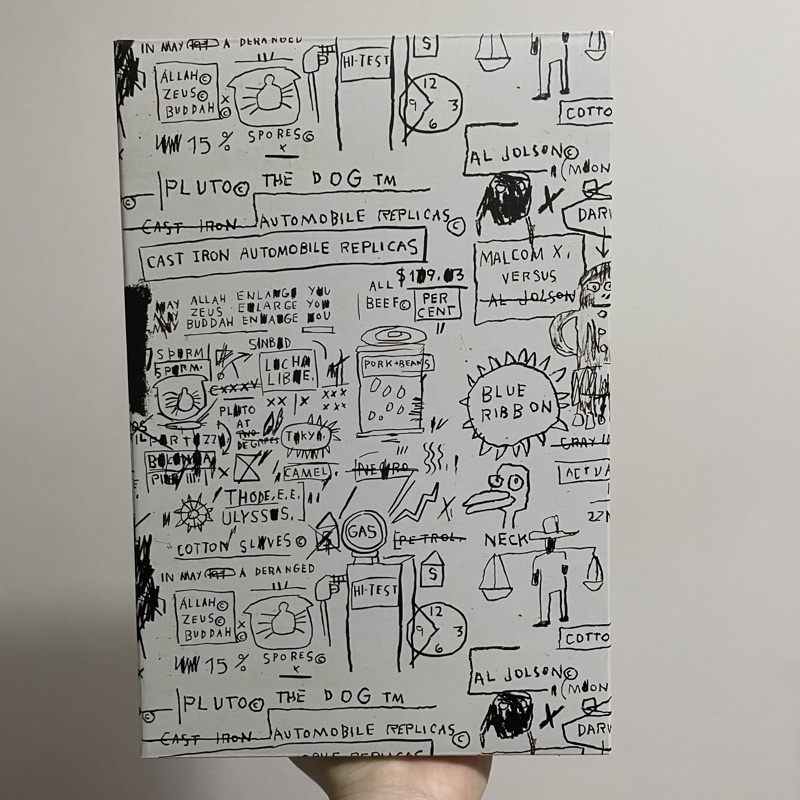 IN MAY A DERANGED
ALLAH©
ZEUS©
BUDDAH
©
15 %
SPORES©
HI-TEST
S
12
9 3
6
COTTO
AL JOLSON©
PLUTO© THE DOG TM
©
CAST IRON AUTOMOBILE REPLICAS ©
CAST IRON AUTOMOBILE REPLICAS
X
DARW
MALCOM X,
VERSUS
AL JOLSON
ALL
BEEF©
PER
CENT
MAY ALLAH ENLARGE YOU
MAY ZEUS ENLARGE YOU
BUDDAH ENLARGE YOU
SINBAD
SPERM
SPERM.
LUCHA
LIBRE.
PORK+BEANS
BLUE
RIBBON
XX
XXX
XXX
PLUTO
AT
DEGREES
TOKYO.
CAMEL.
NEGRO.
ACTUA
THODE.E.E.
ULYSSUS.
COTTON SLAVES ©
GAS
PETROL.
NECK
S
IN MAY A DERANGED
ALLAH©
ZEUS©
BUDDAH
©
15 %
SPORES©
HI-TEST
12
9 3
6
COTTO
AL JOLSON©
PLUTO© THE DOG TM
©
CAST IRON AUTOMOBILE REPLICAS ©
X
DARW